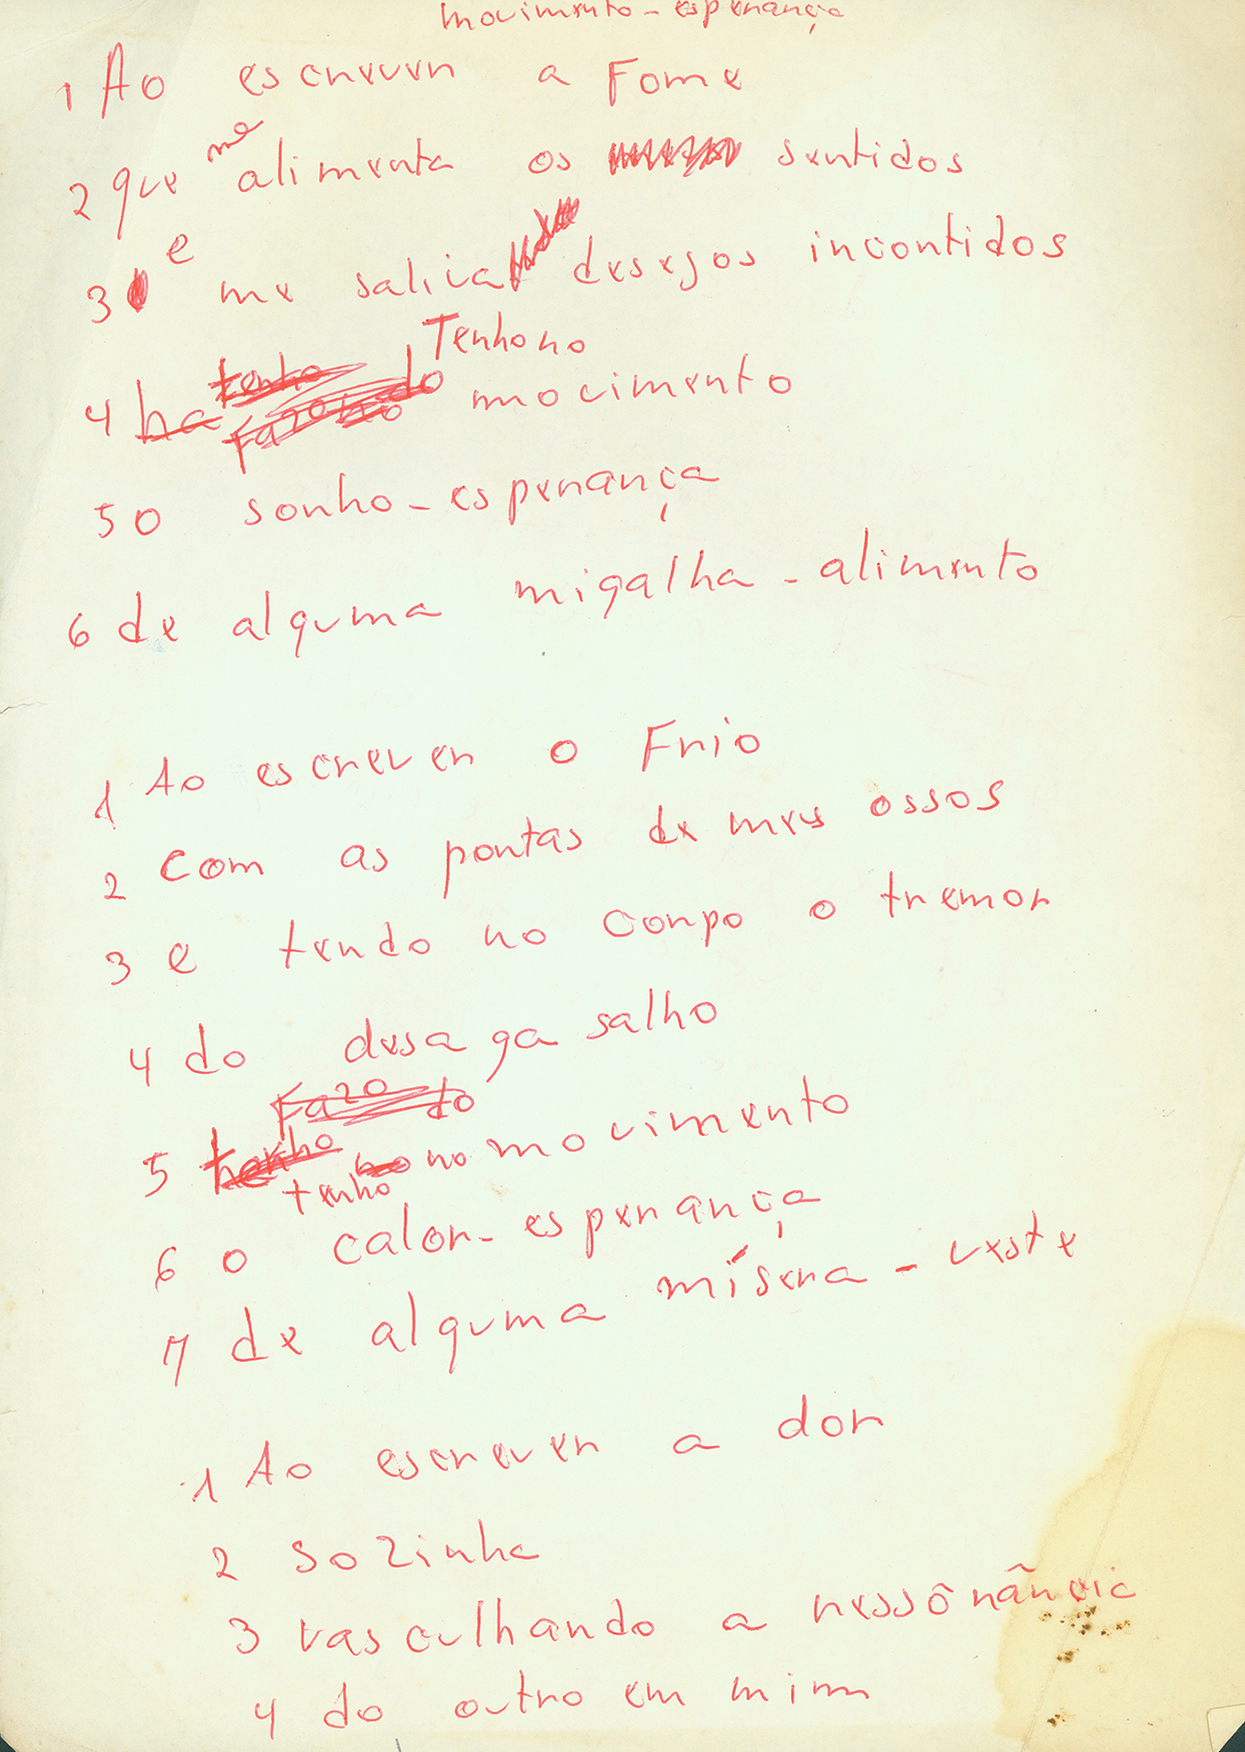 movimento-esperança
1 Ao escrever a Fome
2 que me alimenta os sentidos
3 e me saliva desejos incontidos
Tenho no
4 ha tenho fazo do no movimento
5 o sonho-esperança
6 de alguma migalha-alimento
1 Ao escrever o Frio
2 com as pontas de meus ossos
3 e tendo no corpo o tremor
4 do desagasalho
Fazo do
5 tenho no no movimento
tenho
6 o calor-esperança
7 de alguma mísera-veste
1 Ao escrever a dor
2 sozinha
3 vasculhando a ressônância
4 do outro em mim